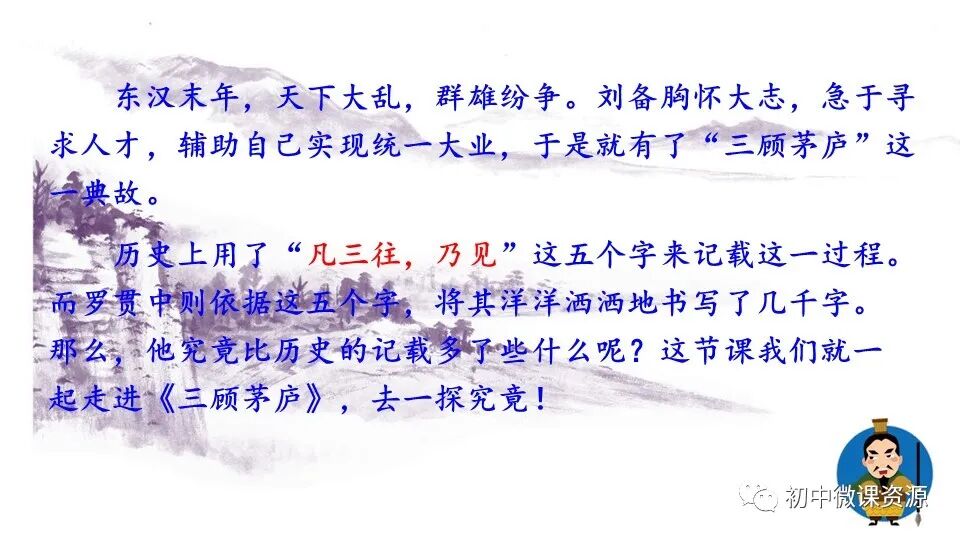 东汉末年，天下大乱，群雄纷争。刘备胸怀大志，急于寻
求人才，辅助自己实现统一大业，于是就有了“三顾茅庐”这
一典故。
历史上用了“凡三往，乃见”这五个字来记载这一过程。
而罗贯中则依据这五个字，将其洋洋洒洒地书写了几千字。
那么，他究竟比历史的记载多了些什么呢？这节课我们就一
起走进《三顾茅庐》，去一探究竟！
初中微课资源